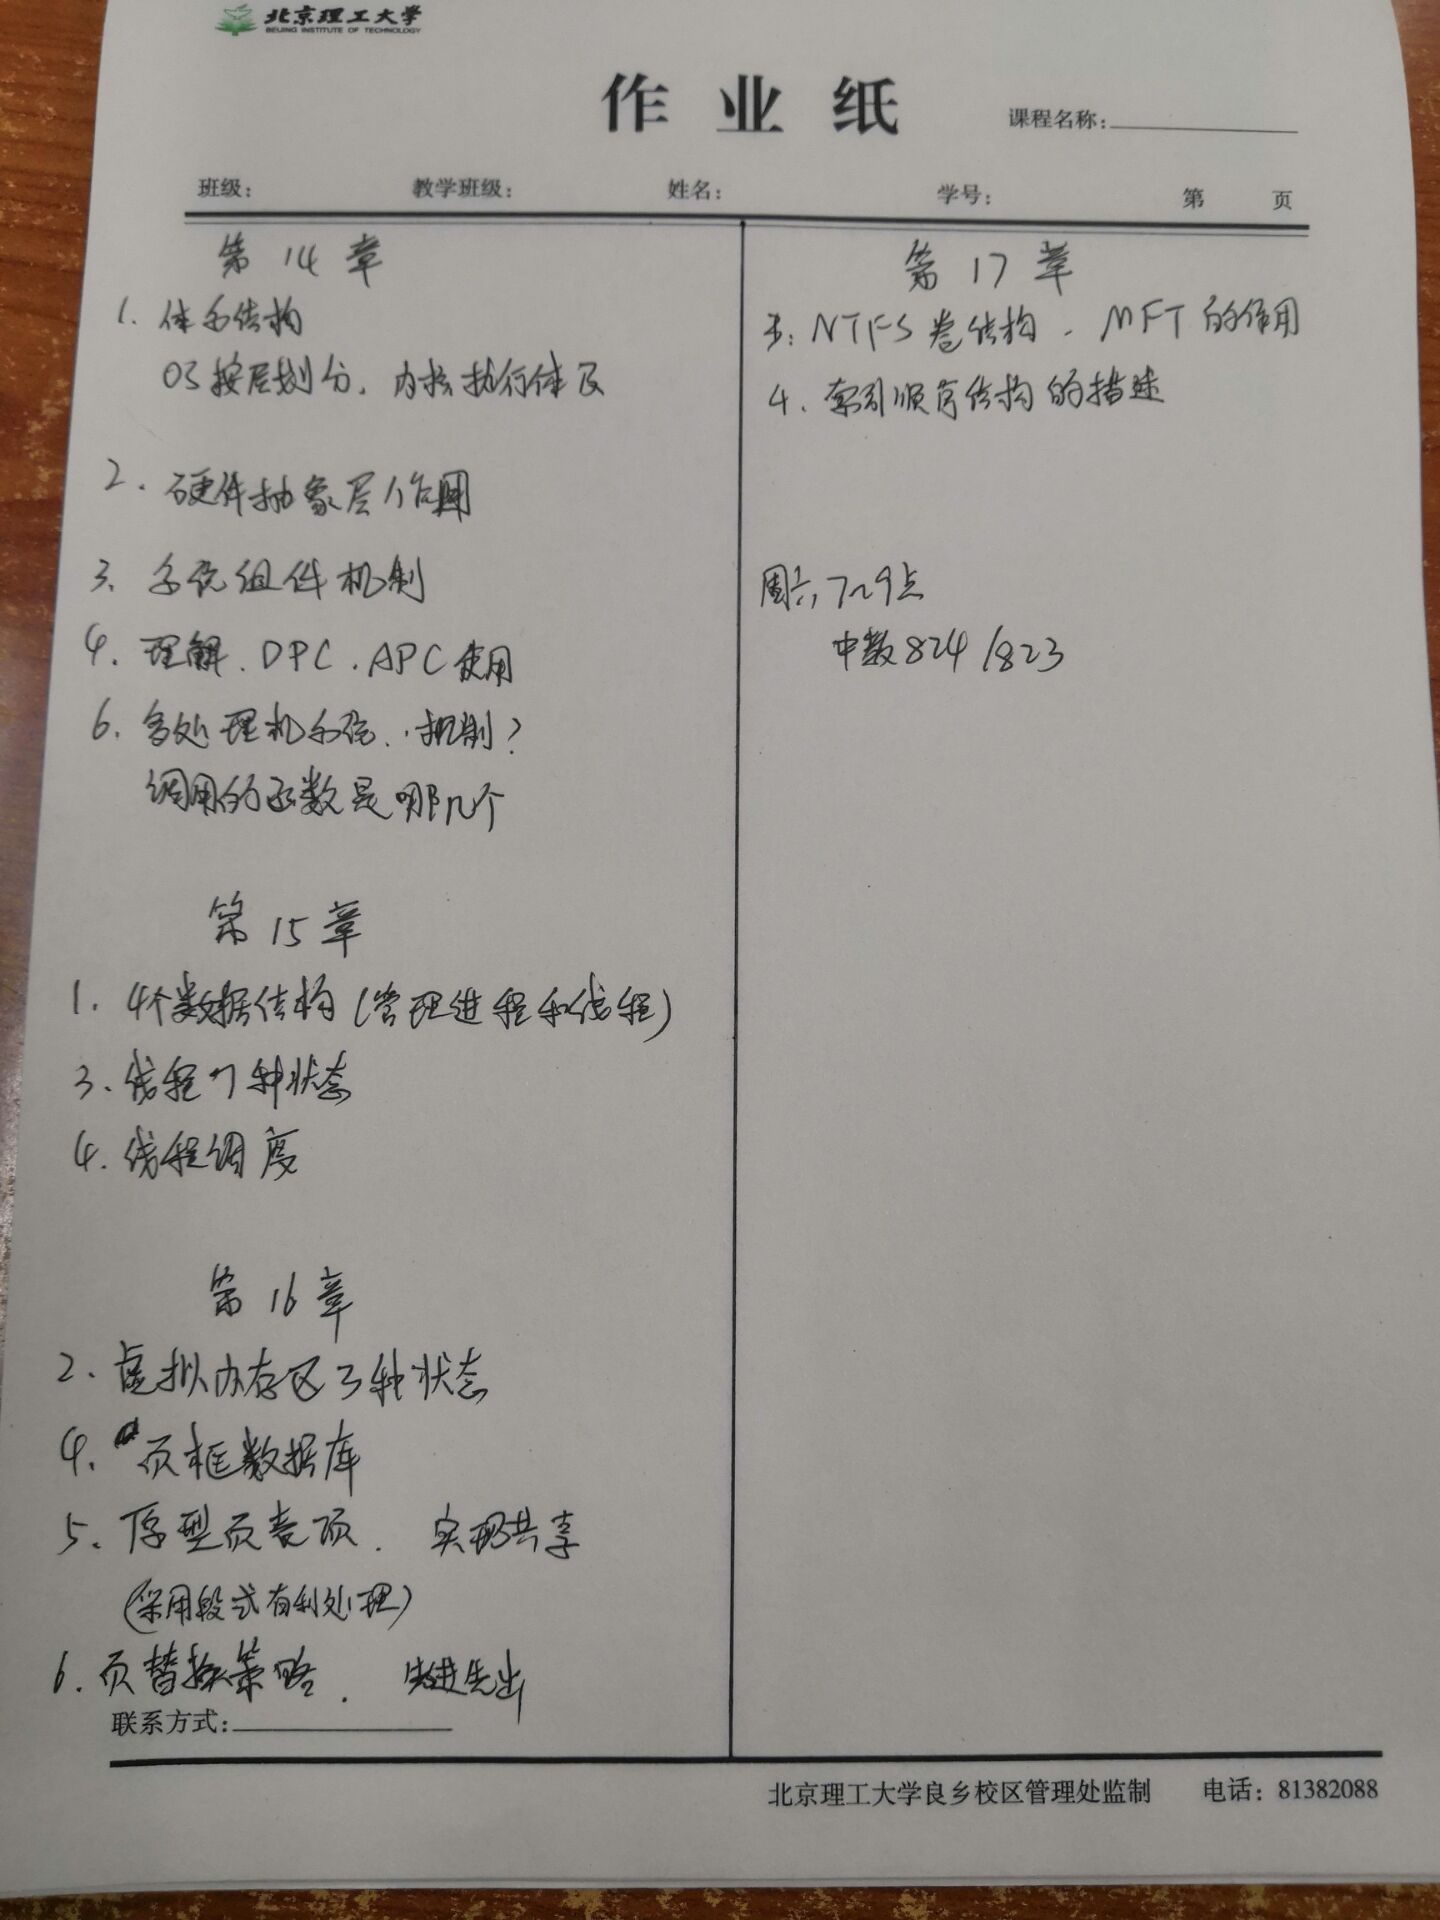 北京理工大学
BEIJING INSTITUTE OF TECHNOLOGY
作业纸
课程名称:
班级: 教学班级: 姓名: 学号: 第 页
第14章
1. 体系结构
OS按层划分、内核执行体及
2. 硬件抽象层作用
3. 系统组件机制
4. 理解、DPC、APC使用
6. 多处理机系统、机制?
调用的函数是哪几个
第15章
1. 4个数据结构(管理进程和线程)
3. 线程7种状态
4. 线程调度
第16章
2. 虚拟内存区3种状态
4. 页框数据库
5. 原型页表项. 实现共享
(采用段式有利处理)
6. 页替换策略. 先进先出
联系方式:
第17章
NTFS卷结构、MFT的作用
4. 索引顺序结构的描述
周六7~9点
中教824/823
北京理工大学良乡校区管理处监制 电话: 81382088